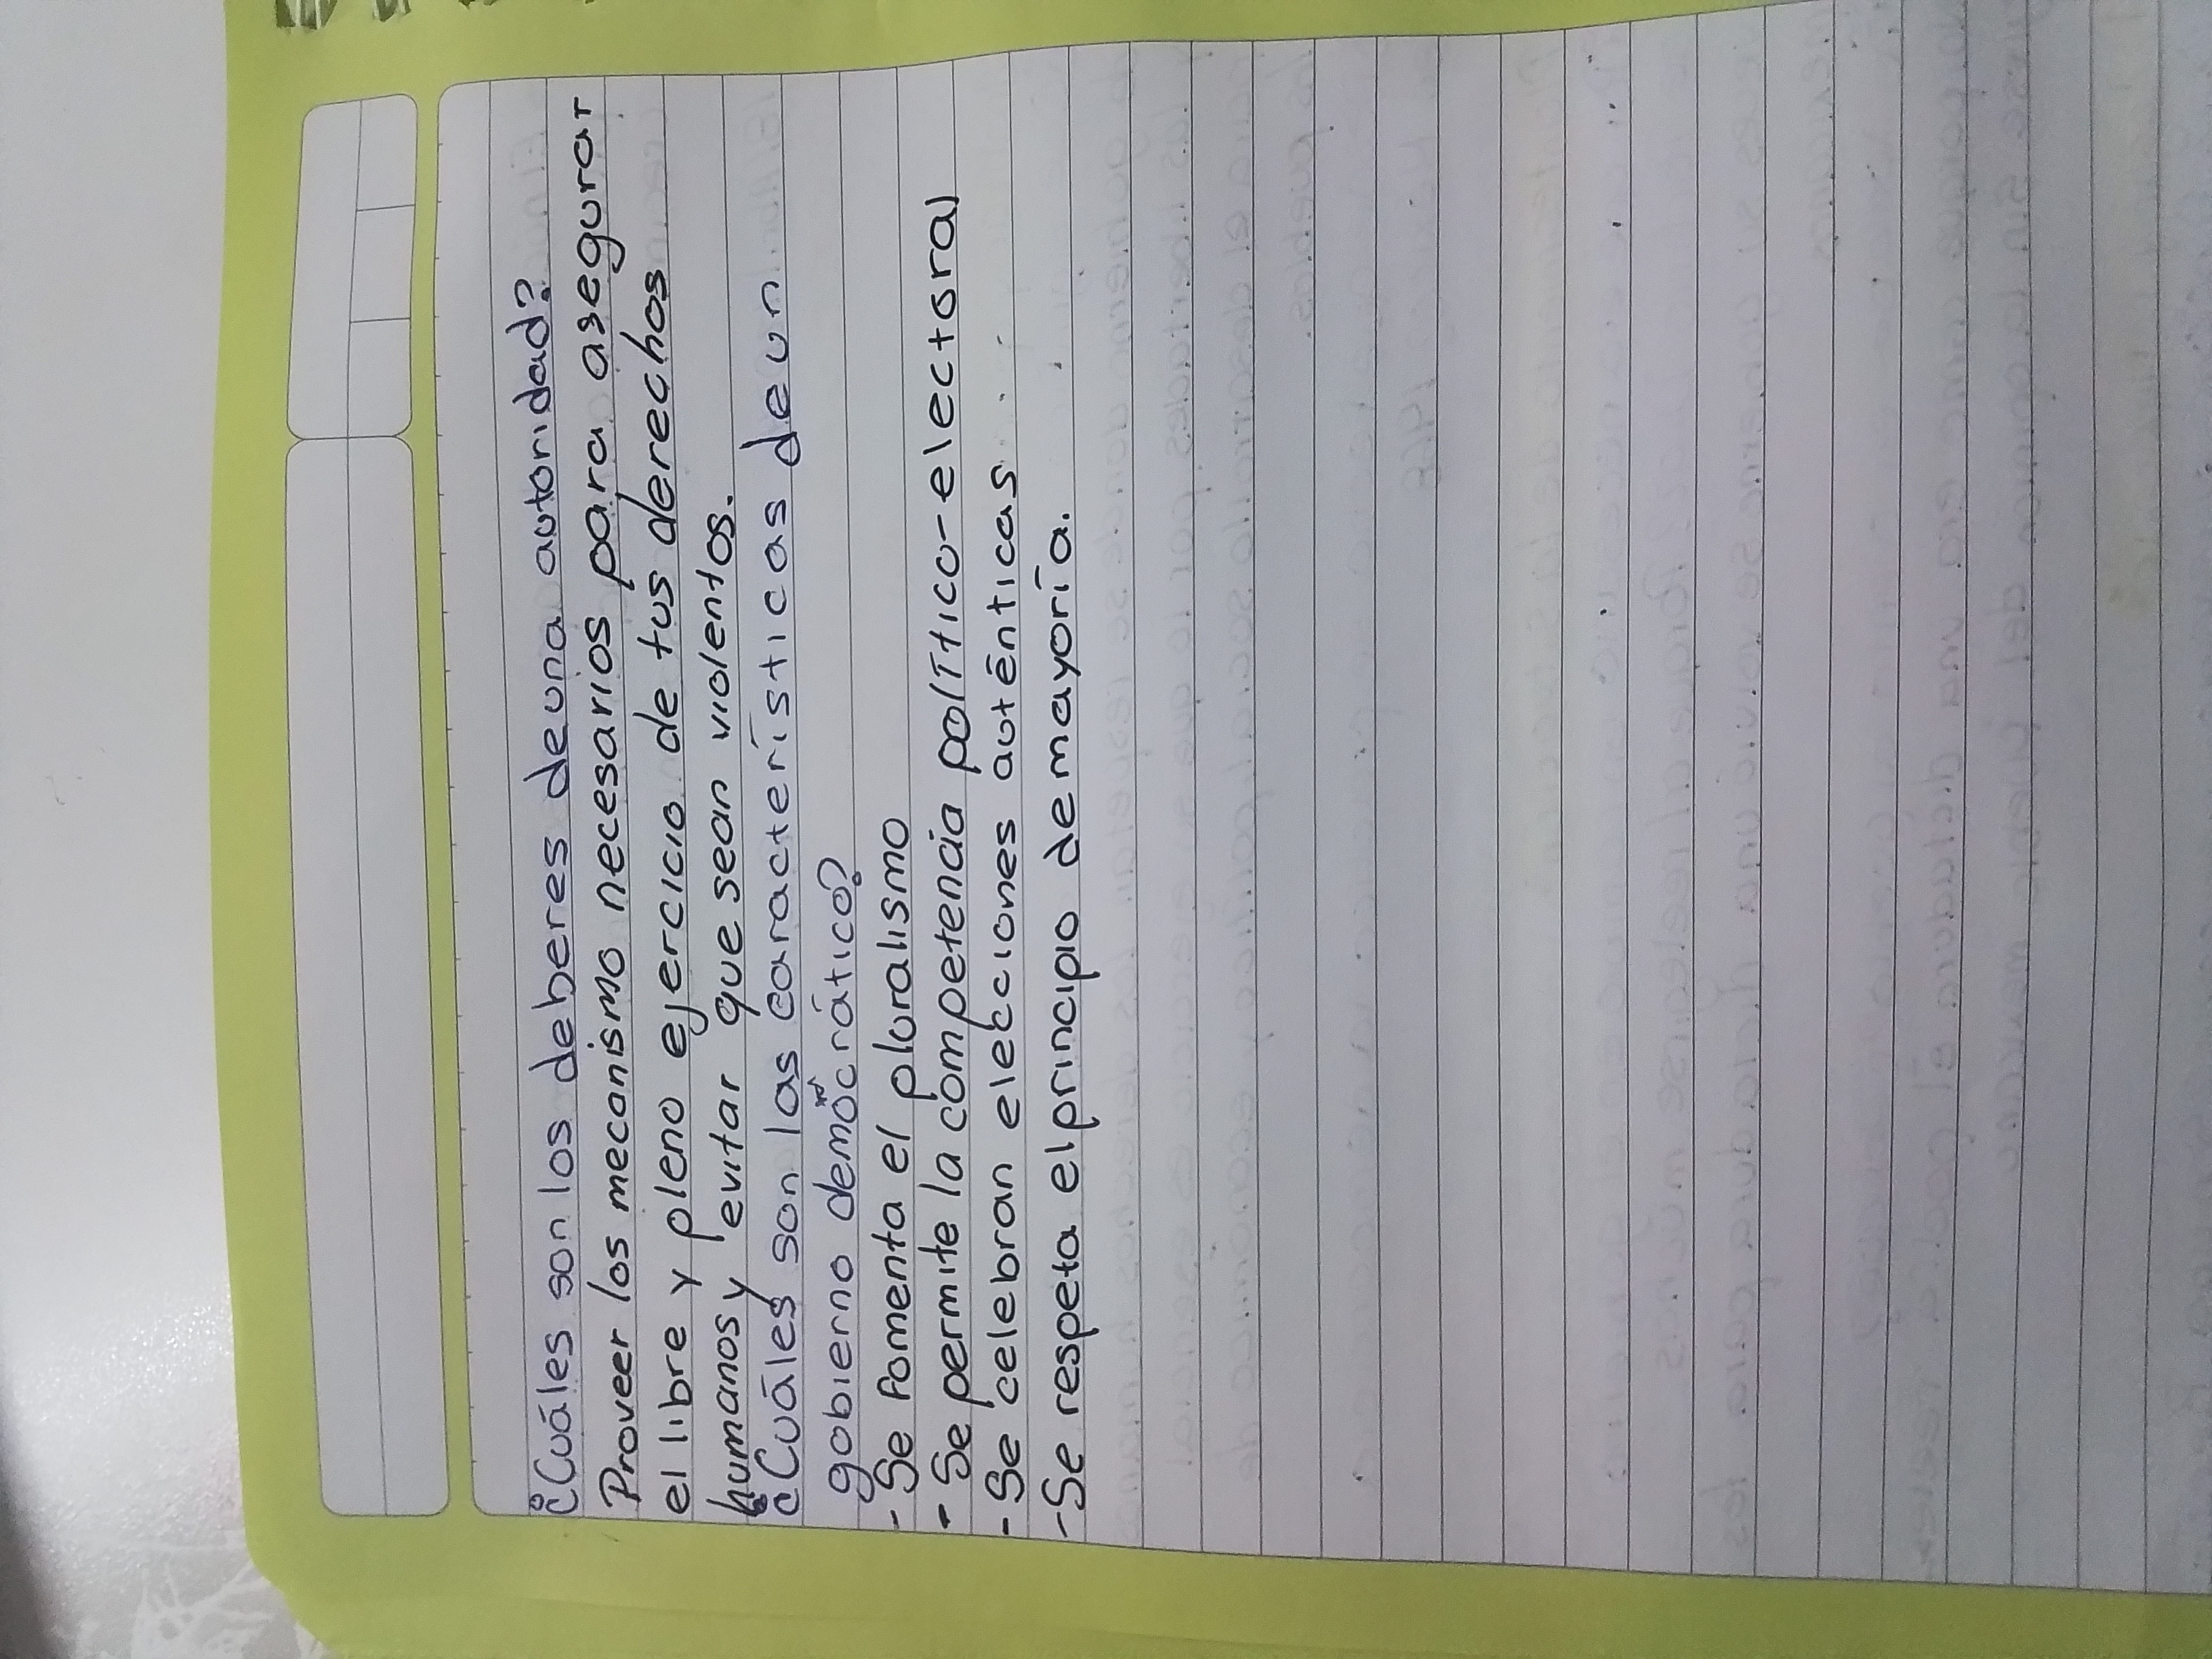 ¿Cuáles son los deberes de una autoridad?
Proveer los mecanismo necesarios para asegurar
el libre y pleno ejercicio de tus derechos
humanos y evitar que sean violentos.
¿Cuáles son las características de un
gobierno democrático?
- Se fomenta el pluralismo
- Se permite la competencia político-electoral
- Se celebran elecciones auténticas
- Se respeta el principio de mayoría.